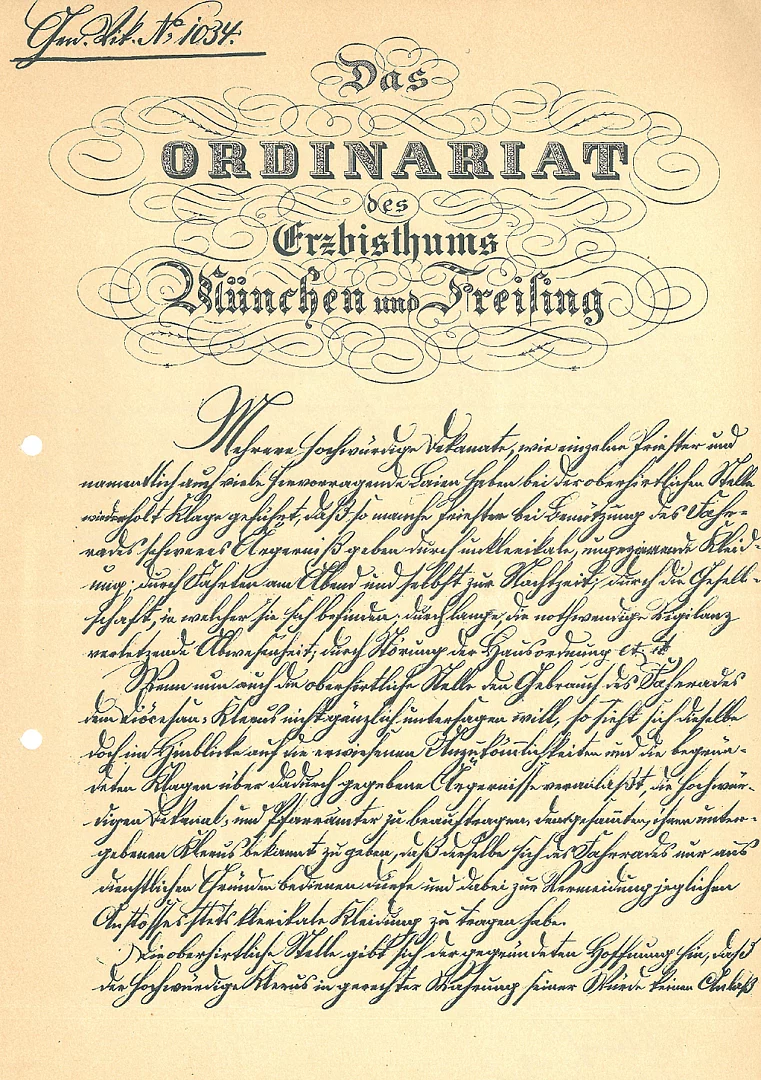 Gen. Vik. No 1034.
Das
ORDINARIAT
des
Erzbisthums
München und Freising
Mehrere hochwürdige Dekanate, wie einzelne Priester und
namentlich auch viele hervorragende Laien haben bei der oberhirtlichen Stelle
wiederholt Klage geführt, daß so manche Priester bei Benützung des Fahr-
rades schweres Ärgerniß geben durch unklerikale, ungeziemende Kleid-
ung; durch Fahrten am Abend und selbst zur Nachtzeit; durch die Gesell-
schaft, in welcher sie sich befinden; durch lange, die nothwendige Vigilanz
verletzende Abwesenheit; durch Störung der Hausordnung etc. etc.
Wenn nun auch die oberhirtliche Stelle den Gebrauch des Fahrrades
dem Diöcesan-Klerus nicht gänzlich untersagen will, so sieht sich dieselbe
doch im Hinblicke auf die erwiesenen Unzukömmlichkeiten und die begrün-
deten Klagen über dadurch gegebene Ärgernisse veranlaßt, die hochwür-
digen Dekanal- und Pfarrämter zu beauftragen, dem gesammten, ihnen unter-
gebenen Klerus bekannt zu geben, daß derselbe sich des Fahrrades nur aus
dienstlichen Gründen bedienen dürfe und dabei zur Vermeidung jeglichen
Anstosses stets klerikale Kleidung zu tragen habe.
Die oberhirtliche Stelle gibt sich der gegründeten Hoffnung hin, daß
der hochwürdige Klerus in gerechter Wahrung seiner Würde keinen Anlaß